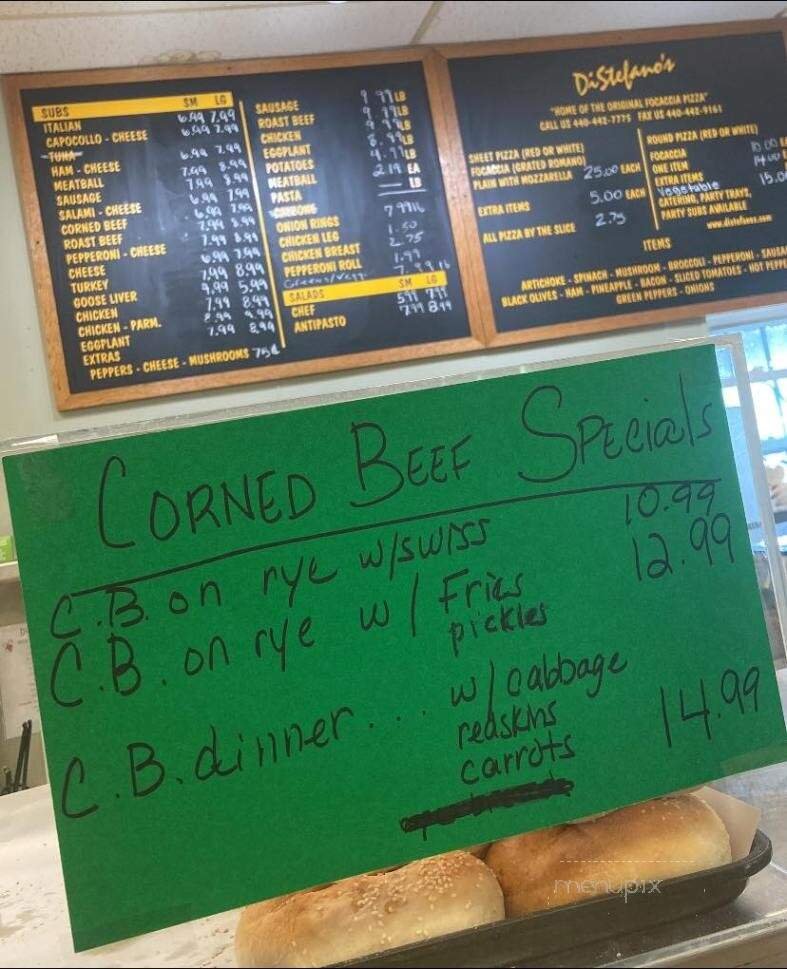 SUBS SM LG
ITALIAN 6.99 7.99
CAPOCOLLO - CHEESE 6.99 7.99
TUNA
HAM - CHEESE 6.99 7.99
MEATBALL 7.99 8.99
SAUSAGE 7.99 8.99
SALAMI - CHEESE 6.99 7.99
CORNED BEEF
ROAST BEEF 7.99 8.99
PEPPERONI - CHEESE 7.99 8.99
CHEESE 6.99 7.99
TURKEY 7.99 8.99
GOOSE LIVER 5.99
CHICKEN 7.99 8.99
CHICKEN - PARM.
EGGPLANT 7.99 8.99
EXTRAS
PEPPERS - CHEESE - MUSHROOMS 75¢
SAUSAGE LB
ROAST BEEF LB
CHICKEN LB
EGGPLANT LB
POTATOES LB
MEATBALL 2.19 EA
PASTA LB
ONION RINGS
CHICKEN LEG 1.50
CHICKEN BREAST 2.75
PEPPERONI ROLL 1.99
SALADS SM LG
CHEF 5.99 7.99
ANTIPASTO 7.99 8.99
DiStefano's
"HOME OF THE ORIGINAL FOCACCIA PIZZA"
CALL US 440-442-7775 FAX US 440-442-9161
SHEET PIZZA (RED OR WHITE)
FOCACCIA (GRATED ROMANO)
PLAIN WITH MOZZARELLA 25.00 EACH
EXTRA ITEMS 5.00 EACH
ALL PIZZA BY THE SLICE 2.75
ROUND PIZZA (RED OR WHITE)
FOCACCIA 10.00
ONE ITEM 14.00
EXTRA ITEMS
Vegetable 15.0
CATERING, PARTY TRAYS,
PARTY SUBS AVAILABLE
www.distefanos.com
ITEMS
ARTICHOKE - SPINACH - MUSHROOM - BROCCOLI - PEPPERONI - SAUSA
BLACK OLIVES - HAM - PINEAPPLE - BACON - SLICED TOMATOES - HOT PEPPE
GREEN PEPPERS - ONIONS
CORNED BEEF SPECIALS
C.B. on rye w/swiss 10.99
C.B. on rye w/ Fries 12.99
pickles
C.B. dinner... w/cabbage
redskins 14.99
carrots
menupix